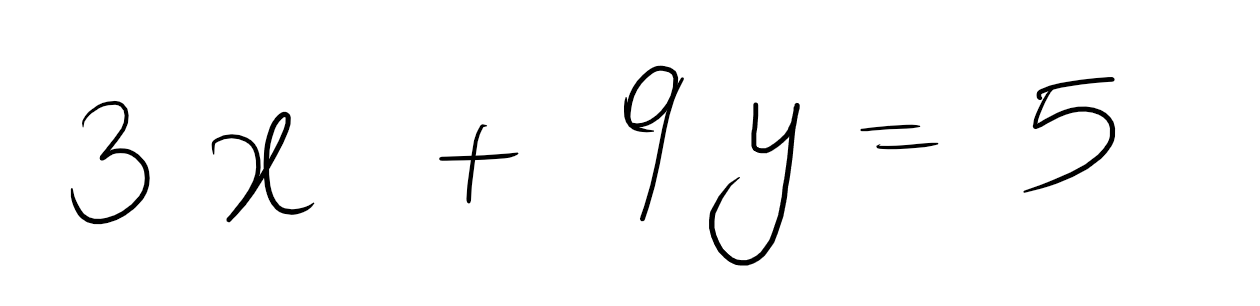 3x + 9y = 5